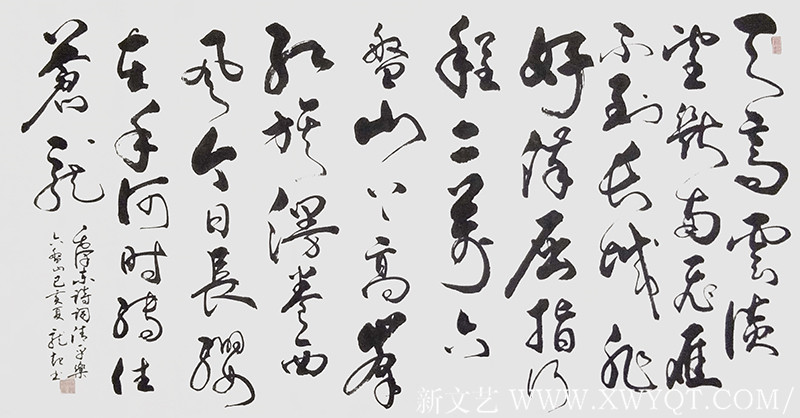 天高雲淡
望断南飛雁
不到长城非
好漢屈指行
程二萬六
盤山上高峯
红旗漫卷西
风今日長纓
在手何时缚住
蒼龍
毛泽东诗词清平樂
六盘山己亥夏龍
新文艺 WWW.XWYQT.COM/